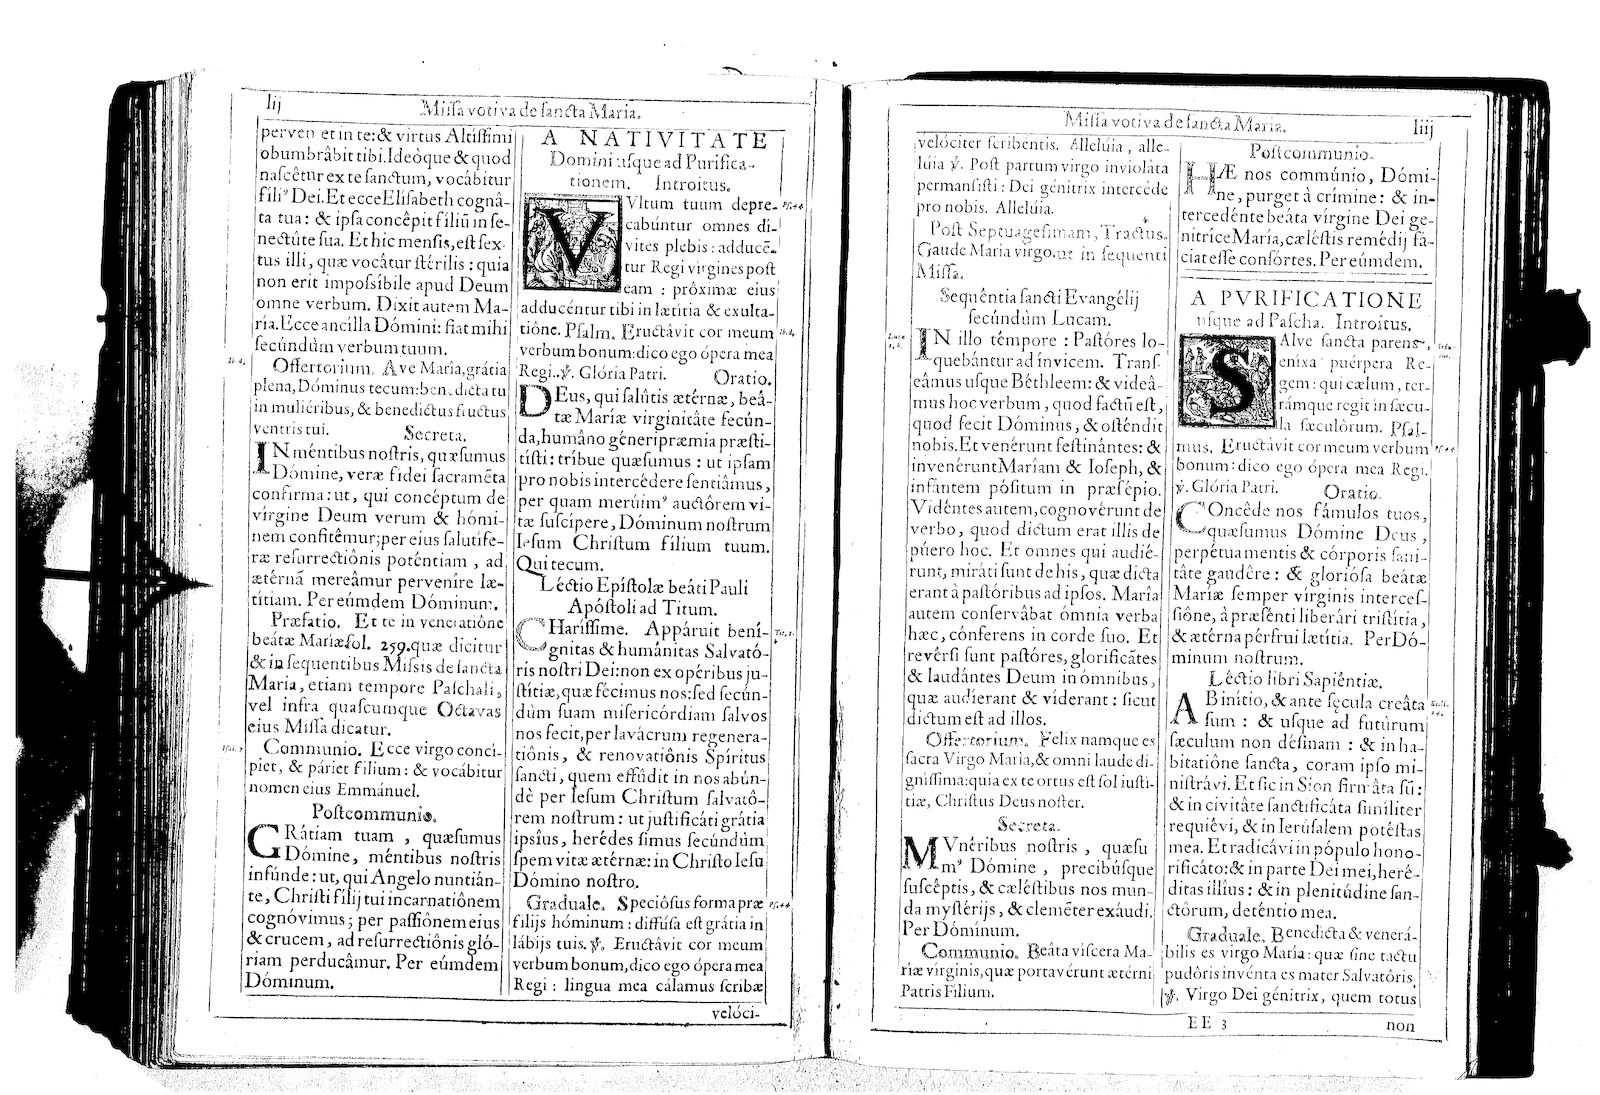 lij
Missa votiva de sancta Maria.
perven et in te: & virtus Altíssimi
obumbrâbit tibi. Ideòque & quod
nascêtur ex te sanctum, vocábitur
fili⁹ Dei. Et ecce Elísabeth cognâ-
ta tua: & ipsa concêpit filiũ in se-
nectûte sua. Et hic mensis, est sex-
tus illi, quæ vocátur stérilis: quia
non erit impossíbile apud Deum
omne verbum. Dixit autem Ma-
ría. Ecce ancilla Dómini: fiat mihi
secúndùm verbum tuum.
Offertorium. Ave María, grátia
plena, Dóminus tecum: benedicta tu
in muliéribus, & benedictus fructus
ventris tui. Secreta.
IN méntibus nostris, quæsumus
Dómine, veræ fídei sacramẽta
confirma: ut, qui concéptum de
vírgine Deum verum & hómi-
nem confitêmur; per eius salutífe-
ræ resurrectiônis poténtiam, ad
ætérnã mereâmur perveníre læ-
títiam. Per eúmdem Dóminum.
Præfatio. Et te in veneratiône
beátæ Mariæ fol. 259. quæ dicitur
& in sequentibus Missis de sancta
Maria, etiam tempore Paschali,
vel infra quascumque Octavas
eius Missa dicatur.
Communio. Ecce virgo conci-
piet, & páriet filium: & vocábitur
nomen eius Emmánuel.
Postcommunio.
GRátiam tuam, quæsumus
Dómine, méntibus nostris
infúnde: ut, qui Angelo nuntián-
te, Christi filij tui incarnatiônem
cognóvimus; per passiônem eius
& crucem, ad resurrectiônis gló-
riam perducâmur. Per eúmdem
Dóminum.
A NATIVITATE
Domini usque ad Purifica-
tionem. Introitus.
VVltum tuum depre-
cabúntur omnes dí-
vites plebis: adducẽ-
tur Regi virgines post
eam: próximæ eius
adducéntur tibi in lætitia & exulta-
tiône. Psalm. Eructâvit cor meum
verbum bonum: dico ego ópera mea
Regi. ℣. Glória Patri. Oratio.
DEus, qui salûtis ætérnæ, beâ-
tæ Maríæ virginitâte fecún-
da, humâno géneri præmia præsti-
tísti: tríbue quæsumus: ut ipsam
pro nobis intercédere sentiâmus,
per quam merúim⁹ auctôrem vi-
tæ suscípere, Dóminum nostrum
Iesum Christum fílium tuum.
Qui tecum.
Léctio Epístolæ beáti Pauli
Apóstoli ad Titum.
CHaríssime. Appáruit bení-
gnitas & humánitas Salvató-
ris nostri Dei: non ex opéribus ju-
stítiæ, quæ fécimus nos: sed secún-
dùm suam misericórdiam salvos
nos fecit, per lavácrum regenera-
tiônis, & renovatiônis Spíritus
sancti, quem effúdit in nos abún-
dè per Iesum Christum salvatô-
rem nostrum: ut justificáti grátia
ipsíus, herédes simus secúndùm
spem vitæ ætérnæ: in Christo Iesu
Dómino nostro.
Graduale. Speciôsus forma præ
filijs hóminum: diffúsa est grátia in
lábijs tuis. ℣. Eructâvit cor meum
verbum bonum, dico ego ópera mea
Regi: lingua mea cálamus scribæ
velóci-
Missa votiva de sancta Maria.
liij
velóciter scribéntis. Allelúia, alle-
lúia ℣. Post partum virgo inviolàta
permansisti: Dei génitrix intercéde
pro nobis. Allelúia.
Post Septuagesimam, Tractus.
Gaude Maria virgo. ut in sequenti
Missa.
Sequêntia sancti Evangélij
secúndùm Lucam.
IN illo témpore: Pastóres lo-
quebántur ad ínvicem. Trans-
eâmus usque Béthleem: & videâ-
mus hoc verbum, quod factũ est,
quod fecit Dóminus, & osténdit
nobis. Et venérunt festinántes: &
invenérunt Maríam & Ioseph, &
infántem pósitum in præsépio.
Vidéntes autem, cognovérunt de
verbo, quod dictum erat illis de
púero hoc. Et omnes qui audié-
runt, miráti sunt de his, quæ dicta
erant à pastóribus ad ipsos. María
autem conservâbat ómnia verba
hæc, cónferens in corde suo. Et
revérsi sunt pastóres, glorificãtes
& laudántes Deum in ómnibus,
quæ audíerant & víderant: sicut
dictum est ad illos.
Offertorium. Felix namque es
sacra Virgo María, & omni laude di-
gníssima: quia ex te ortus est sol iusti-
tiæ, Christus Deus noster.
Secreta.
MVnéribus nostris, quæsu
m⁹ Dómine, precibúsque
suscéptis, & cæléstibus nos mun-
da mystérijs, & clemẽter exáudi.
Per Dóminum.
Communio. Beáta viscera Ma-
riæ vírginis, quæ portavérunt ætérni
Patris Filium.
Postcommunio.
HÆ nos commúnio, Dómi-
ne, purget à crímine: & in-
tercedénte beáta vírgine Dei ge-
nitríce María, cæléstis remédij fá-
ciat esse consórtes. Per eúmdem.
A PVRIFICATIONE
usque ad Pascha. Introitus.
SAlve sancta parens,
enixa puérpera Re-
gem: qui cælum, ter-
rámque regit in sæcu-
la sæculôrum. Psal-
mus. Eructâvit cor meum verbum
bonum: dico ego ópera mea Regi.
℣. Glória Patri. Oratio.
COncêde nos fámulos tuos,
quæsumus Dómine Deus,
perpétua mentis & córporis sani-
tâte gaudêre: & gloriósa beátæ
Maríæ semper vírginis interces-
siône, à præsénti liberári tristítia,
& ætérna pérfrui lætítia. Per Dó-
minum nostrum.
Léctio libri Sapiéntiæ.
AB inítio, & ante sęcula creâta
sum: & usque ad futúrum
sæculum non désinam: & in ha-
bitatiône sancta, coram ipso mi-
nistrávi. Et sic in Sion firmâta sũ:
& in civitâte sanctificáta simíliter
requiévi, & in Ierúsalem potéstas
mea. Et radicávi in pópulo hono-
rificáto: & in parte Dei mei, heré-
ditas illíus: & in plenitúdine san-
ctôrum, deténtio mea.
Graduale. Benedícta & venerá-
bilis es virgo Maria: quæ sine tactu
pudôris invénta es mater Salvatôris.
℣. Virgo Dei génitrix, quem totus
EE 3
non